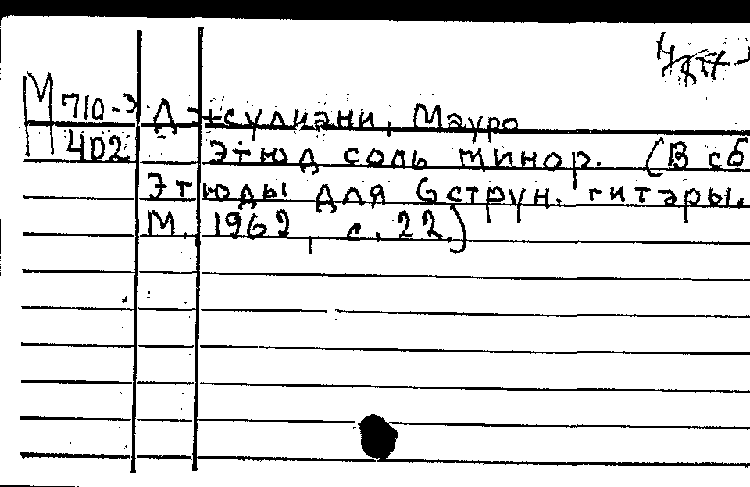 М 710-3
402
Джулиани, Мауро
Этюд соль минор. (В сб
Этюды для 6струн. гитары.
М., 1962, с. 22.)